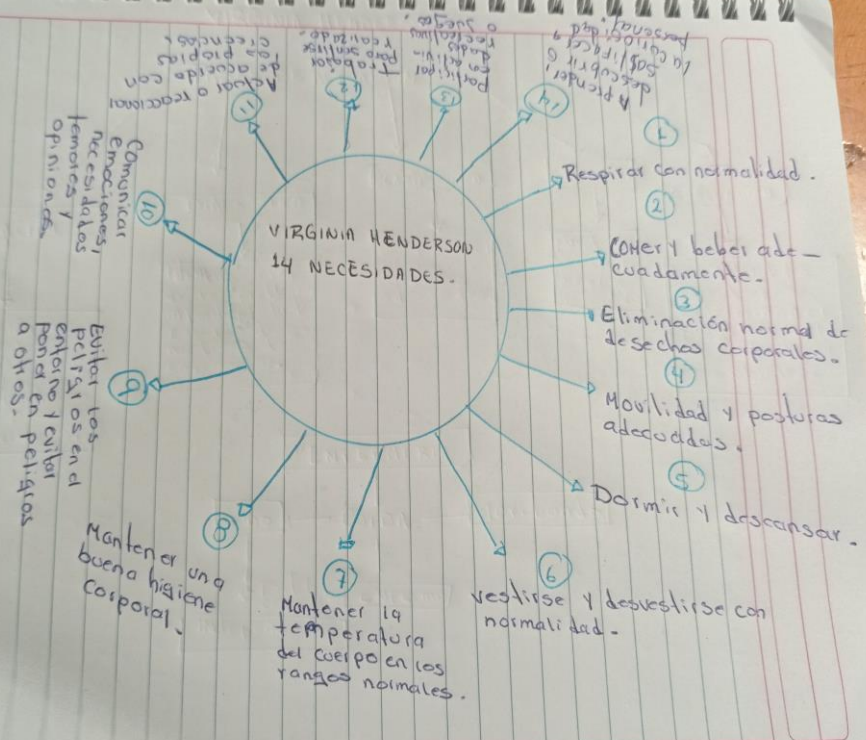 VIRGINIA HENDERSON
14 NECESIDADES.
1
Respirar con normalidad.
2
Comer y beber ade-
cuadamente.
3
Eliminación normal de
desechos corporales.
4
Movilidad y posturas
adecuadas.
5
Dormir y descansar.
6
vestirse y desvestirse con
normalidad.
7
Mantener la
temperatura
del cuerpo en los
rangos normales.
8
Mantener una
buena higiene
corporal.
9
Evitar los
peligros en el
entorno y evitar
poner en peligros
a otros.
10
Comunicar
emociones,
necesidades
temores y
opiniones
11
Actuar o reaccionar
de acuerdo con
las propias
creencias.
12
trabajar
para sentirse
realizado.
13
participar
en activi-
dades
recreativas
o juegos.
14
Aprender,
descubrir o
satisfacer
la curiosidad